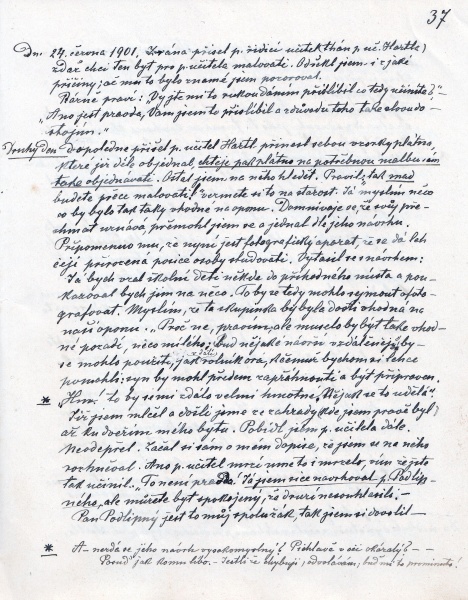 37
Dne 24. června 1901. Z rána přišel p. řídící učitel k nám p. uč. Hartl,
zdaž chci ten byt pro p. učitele malovati. Odřekl jsem i z jaké
příčiny; ač mu to bylo známé jsem pozoroval.
Rázně praví: „Vy jste mi to rukoudáním přislíbil co tedy učiníte?"
„Ano jest pravda, Vám jsem to přislíbil a z důvodu toho také slovu do-
stojím."
Druhý den dopoledne přišel p. učitel Hartl přinesl sebou vzorky plátna,
které již děl. objednal, chtěje pak plátno na potřebnou malbu sám
také objednávati. Ostal jsem na něho hleděti. Pravil, tak snad
budete přece malovati! vezmete si to na starost. Já myslím něco
co by bylo tak taky vhodné na oponu. Domnívaje se, že svůj pře-
chmat urovná, přemohl jsem se a jednal dle jeho návrhu.
Připomenuv mu, že nyní jest fotografický aparát, že se dá leh-
čeji přirozená posice osoby studovati. Vytasil se s návrhem:
Já bych vzal školní děti někde do příhodného místa a pou-
kazoval bych jim na něco. To by se tedy mohlo sejmout ofoto-
grafovat. Myslím, že ta skupinka by byla dosti vhodná na
naši oponu. „Proč ne, pravím, ale muselo by být také vhod-
né pozadí, něco milého; buď nějaké návrší vzdálenější by
se mohlo použít, v dáli jak rolník orá, k čemuž bychom si lehce
pomohli: syn by mohl předem zapřáhnouti a být připraven.
* „Hm! to by se mi zdálo velmi hmotné. Nějak se to udělá".
Již jsem mlčel a došli jsme ze zahrady kde jsem prací byl
až ku dveřím mého bytu. Pobídl jsem p. učitele dále.
Neodepřel. Začal si sám o mém dopise, že jsem se na něho
rozhněval. Ano p. učitel mrzí mne to i mrzelo, vím že jste
tak učinil. „To není pravda. Já jsem sice navrhoval p. Podlip-
ného, ale můžete být spokojený, že druzí nesouhlasili; -
Pan Podlipný jest to můj spolužák, tak jsem si dovolil -
* A - nezdá se jeho návrh vysokomyslný? Pichlavě v oči okázalý? -
Posuď jak komu libo. - Jestli se chybuji, odvolávám, buď mi to prominuto!